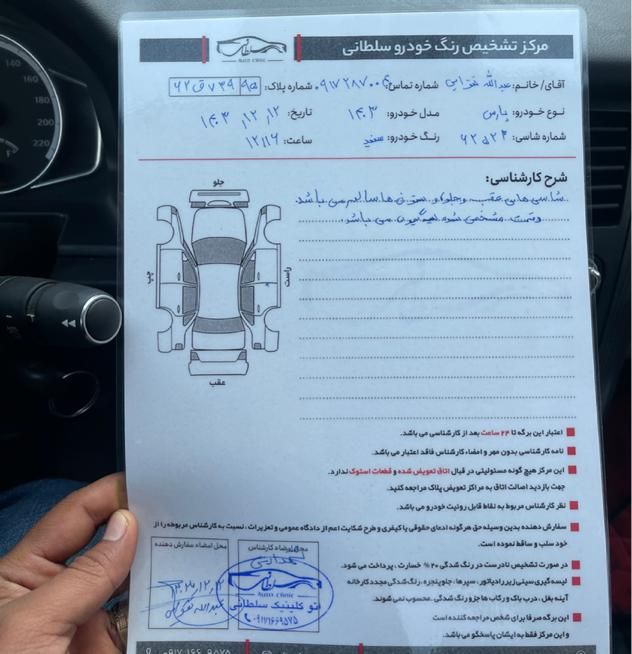 مرکز تشخیص رنگ خودرو سلطانی
سلطانی
AUTO CLINIC
آقای/خانم: عبدالله شماره تماس: شماره پلاک: ۶۲ ق ۷۳۹ ۹۵
نوع خودرو: پارس مدل خودرو: ۱۴۰۳ تاریخ: ۱۴۰۳/۱۲/۱۲
شماره شاسی: رنگ خودرو: سفید ساعت: ۱۲/۱۶
شرح کارشناسی:
شاسی های عقب و جلو و ستون ها سالم می باشد.
قسمت مشخص شده لیسه گیری می باشد.
جلو
چپ
راست
عقب
اعتبار این برگه تا ۲۴ ساعت بعد از کارشناسی می باشد.
نامه کارشناسی بدون مهر و امضاء کارشناس فاقد اعتبار می باشد.
این مرکز هیچ گونه مسئولیتی در قبال اتاق تعویض شده و قطعات استوک ندارد.
جهت بازدید اصالت اتاق به مراکز تعویض پلاک مراجعه کنید.
نظر کارشناس مربوط به نقاط قابل روئیت خودرو می باشد.
سفارش دهنده بدین وسیله حق هرگونه ادعای حقوقی یا کیفری و طرح شکایت اعم از دادگاه عمومی و تعزیرات ، نسبت به کارشناس مربوطه را از
خود سلب و ساقط نموده است.
در صورت تشخیص نادرست در رنگ شدگی ۲۰% خسارت ، پرداخت می شود.
لیسه گیری سینی زیر رادیاتور ، سپرها ، جلوپنجره ، رنگ شدگی مجدد کارخانه
آینه بغل ، درب باک و رکاب ها جزو رنگ شدگی، محسوب نمی شوند.
این برگه صرفا برای شخص مراجعه کننده است
و این مرکز فقط به ایشان پاسخگو می باشد.
محل امضاء سفارش دهنده
۱۴۰۳/۱۲/۱۲
مهر و امضاء کارشناس
سلطانی
AUTO CLINIC
اتو کلینیک سلطانی
۰۹۱۷۱۶۶۹۵۷۵